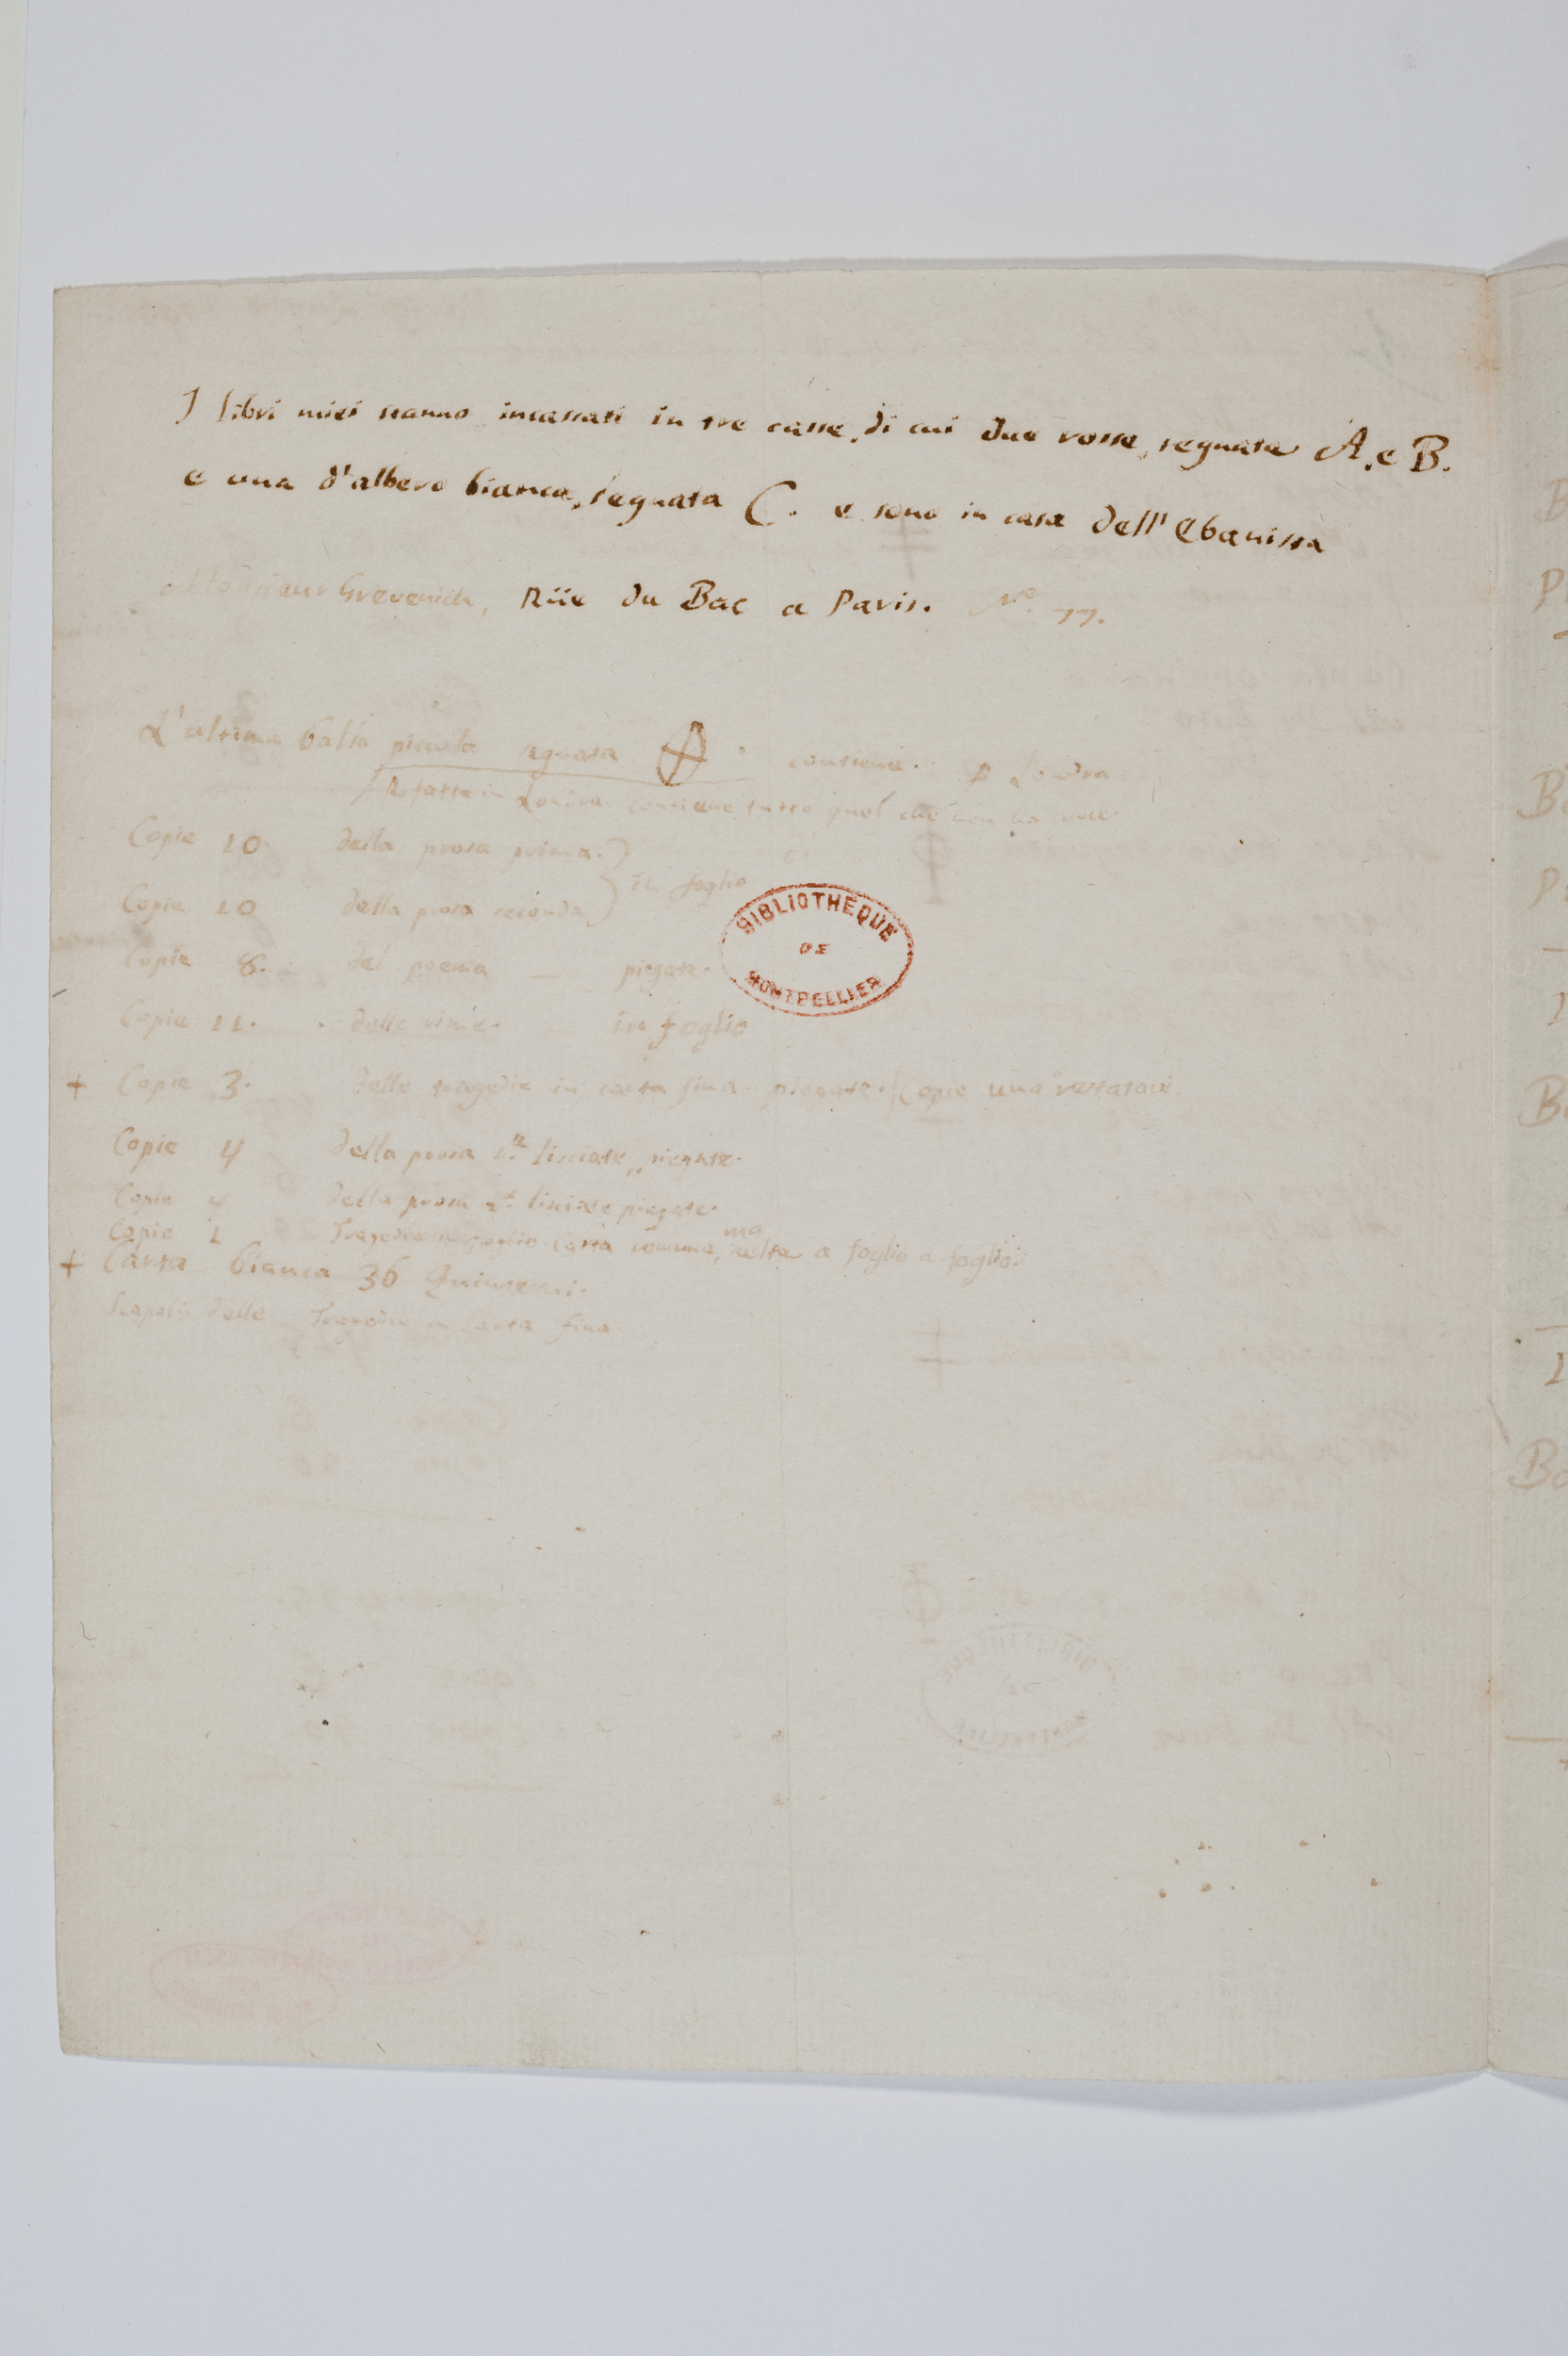 I libri miei stanno incassati in tre casse, di cui due rosse, segnate A. e B.
e una d'albero bianca, segnata C. e sono in casa dell' Ebanista
Monsieur Grevenich, Rüe du Bac a Paris. No. 77.
L'ultima balla piccola segnata contiene. Londra
Rifatta in Londra contiene tutto quel che non ha croce.
Copie 10. della prosa prima.
in foglio
Copie 10 della prosa seconda
Copie 8. del poema — piegate.
Copie 11. delle rime. in foglio
+ Copie 3. delle tragedie in carta fina piegate. Copie una restatavi.
Copie 4 della prosa 1.a lisciate, piegate.
Copie 4 della prosa 2.a lisciate piegate.
Copie 1 Tragedie in foglio carta comune, ma scelta a foglio a foglio.
+ Carta bianca 36 Quinterni.
Scapoli delle Tragedie in carta fina
BIBLIOTHEQUE
DE
MONTPELLIER